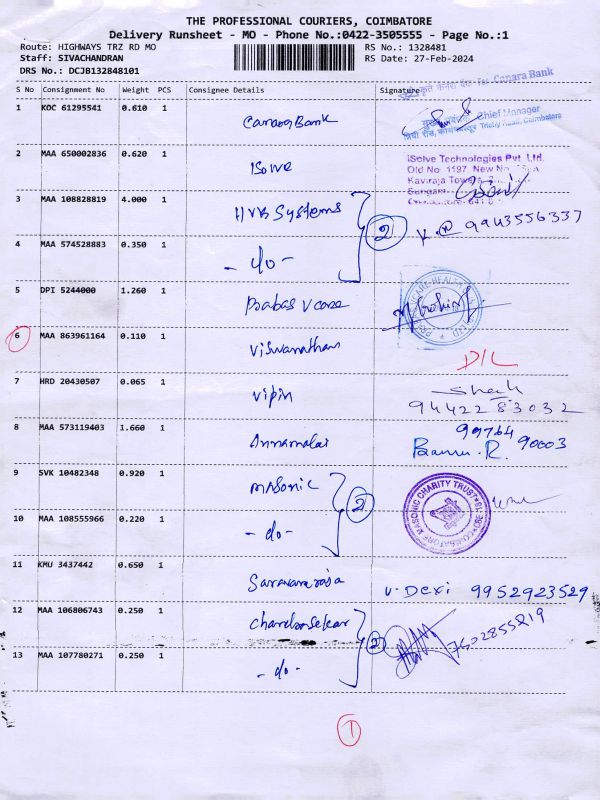 THE PROFESSIONAL COURIERS, COIMBATORE
Delivery Runsheet - MO - Phone No.:0422-3505555 - Page No.:1
Route: HIGHWAYS TRZ RD MO
RS No.: 1328481
Staff: SIVACHANDRAN
RS Date: 27-Feb-2024
DRS No.: DCJB132848101
S No Consignment No Weight PCS Consignee Details Signature
Canara Bank
1 KOC 61295541 0.610 1 Canara Bank
Chief Manager
Trichy Road, Coimbatore
2 MAA 650002836 0.620 1 Isolve
iSolve Technologies Pvt. Ltd.
Old No 1197 New No
Kaviraja Towers
3 MAA 108828819 4.000 1 HVB Systems
2 9943556337
4 MAA 574528883 0.350 1 - do -
5 DPI 5244000 1.260 1 Prabas Vcare
6 MAA 863961164 0.110 1 Viswanathan
D/L
7 HRD 20430507 0.065 1 Vipin
94422 83032
8 MAA 573119403 1.660 1 Annamalai
99764 90003
9 SVK 10482348 0.920 1 Masonic
2
COIMBATORE MASONIC CHARITY TRUST
10 MAA 108555966 0.220 1 - do -
11 KMU 3437442 0.650 1 Saravanaraja
V. Devi 9952923529
12 MAA 106806743 0.250 1 Chandrasekar
2
13 MAA 107780271 0.250 1 - do -
1